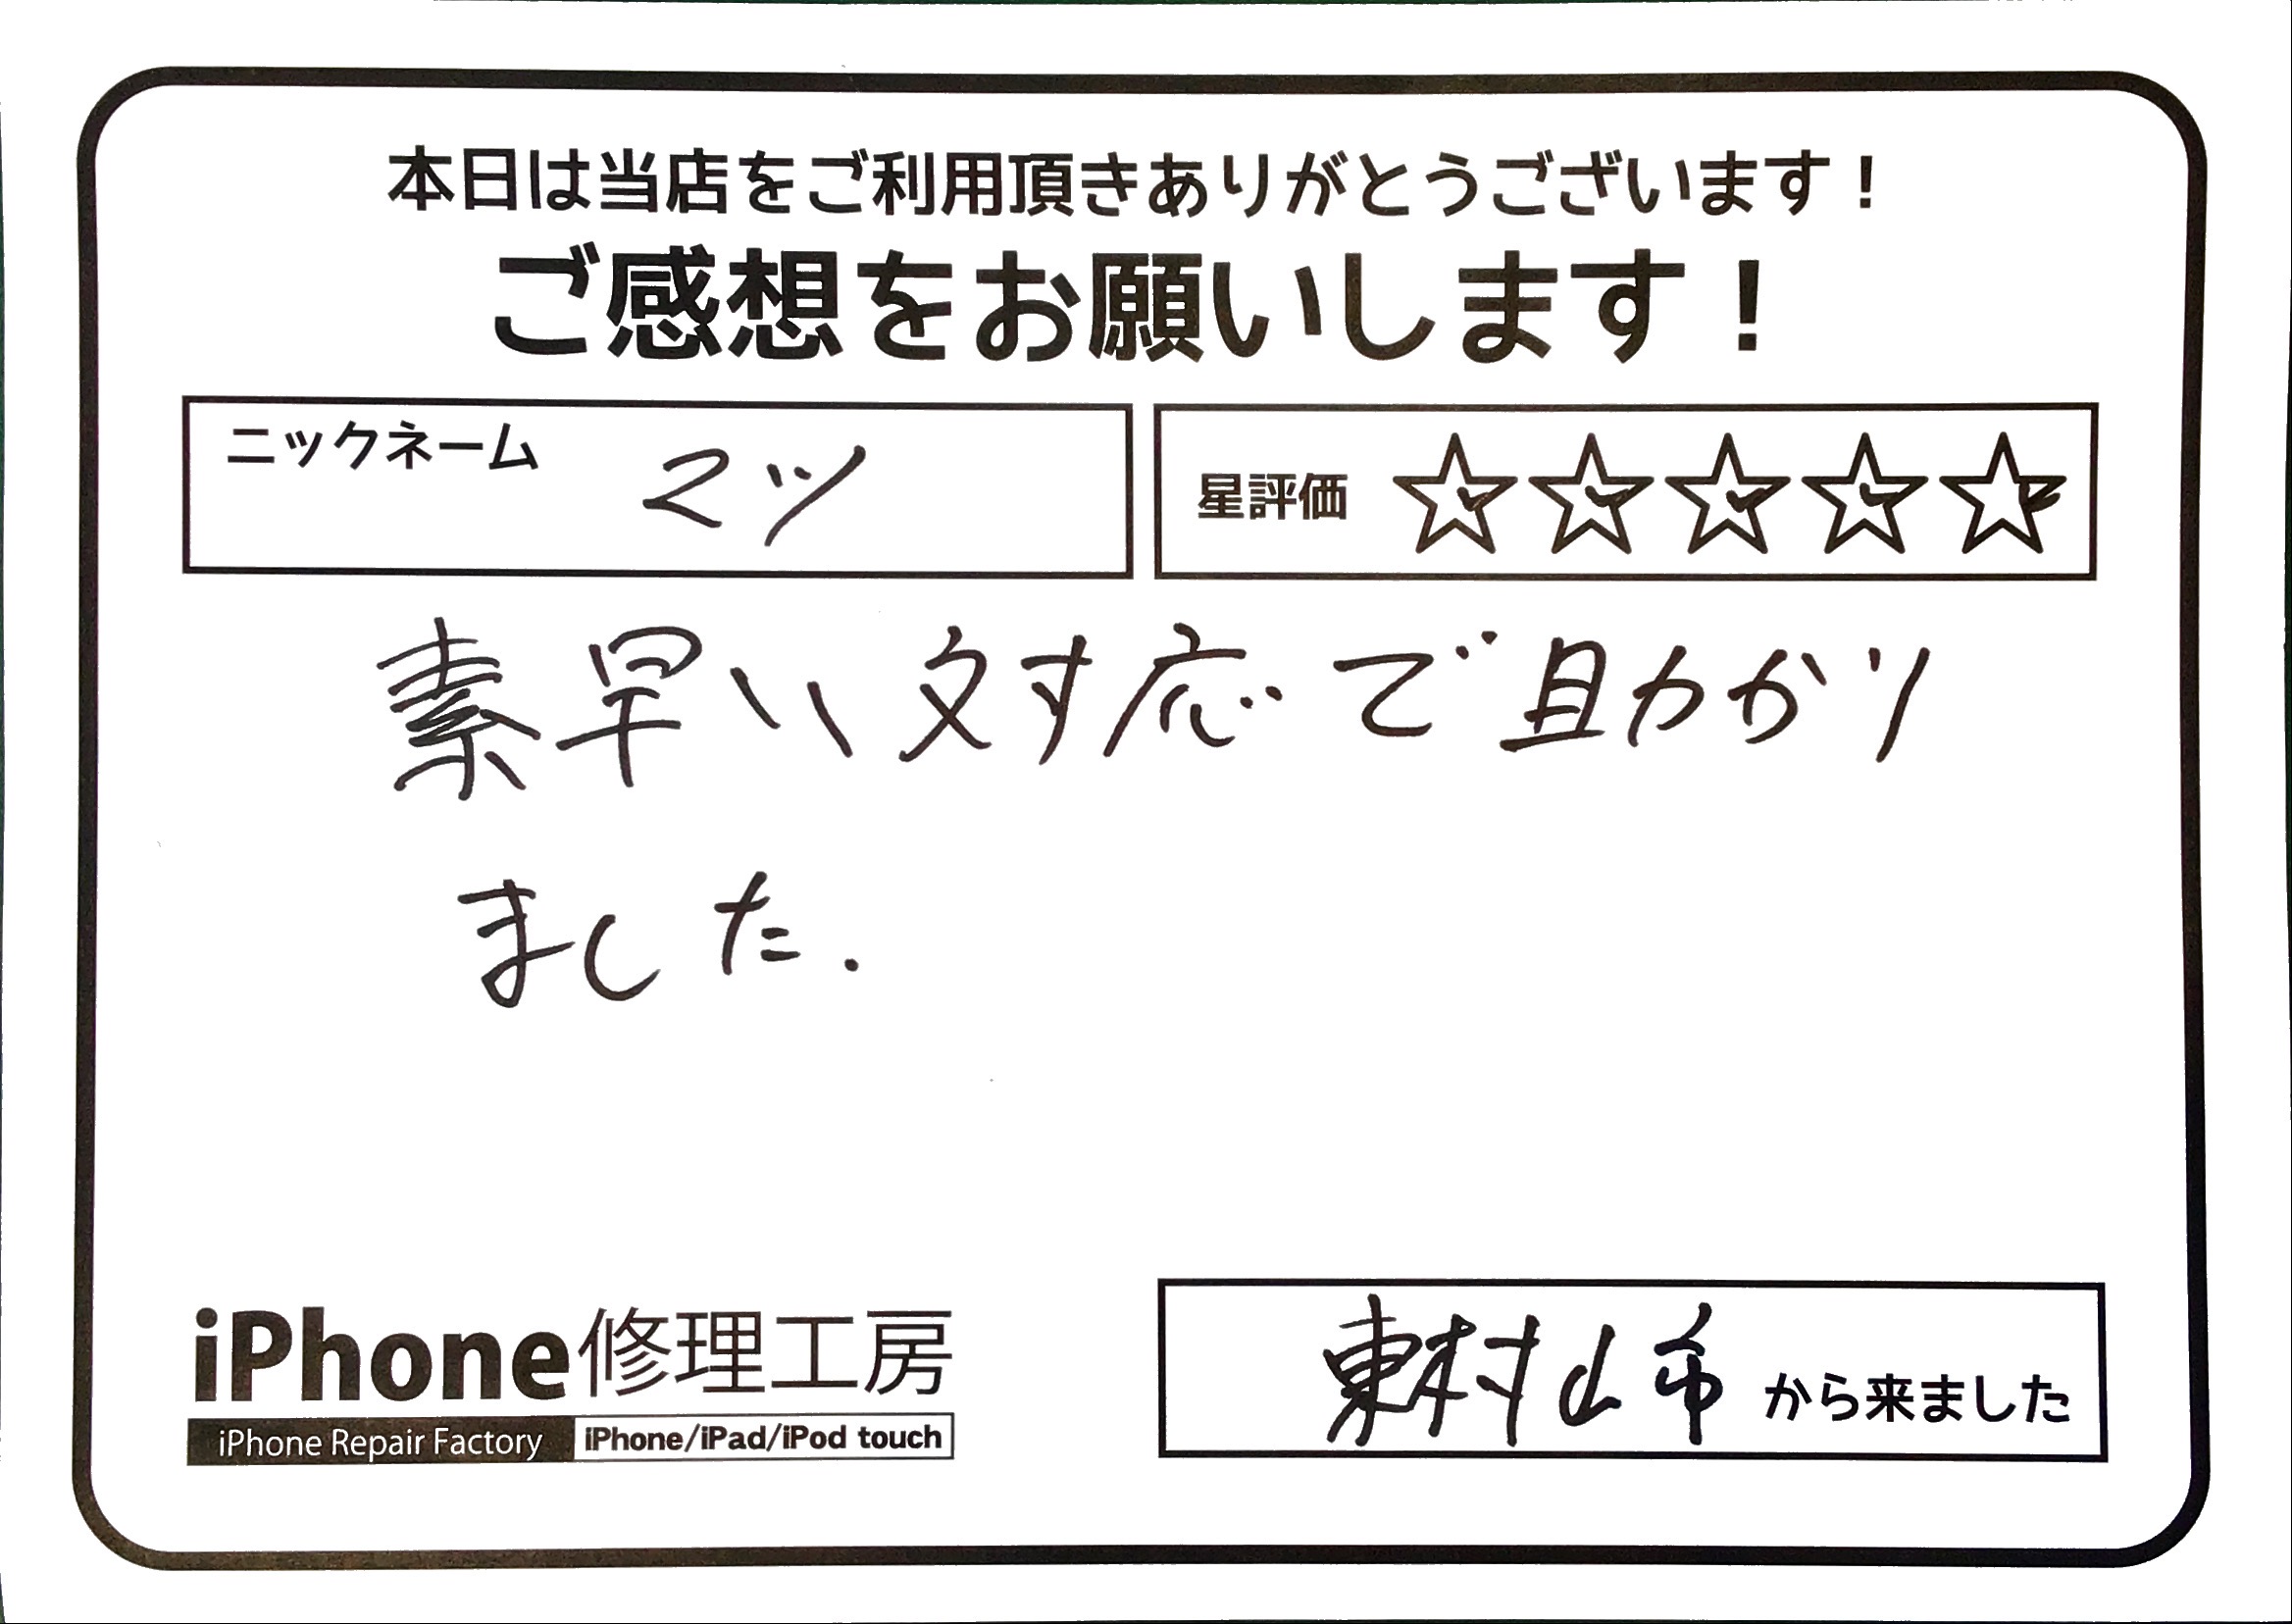 本日は当店をご利用頂きありがとうございます！
ご感想をお願いします！
ニックネーム マツ
星評価 ☆☆☆☆☆
素早い対応で助かり
ました.
iPhone修理工房
iPhone Repair Factory iPhone/iPad/iPod touch
東村山市 から来ました